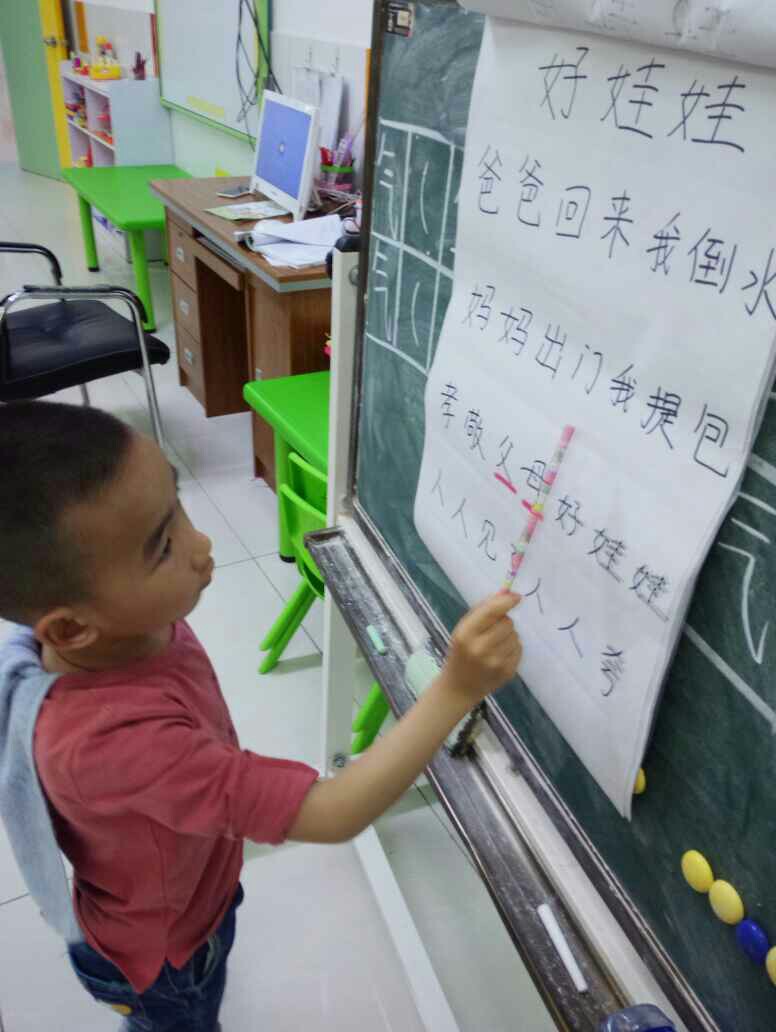 好娃娃
爸爸回来我倒水
妈妈出门我提包
孝敬父母好娃娃
人人见人人夸
气(
气(
气